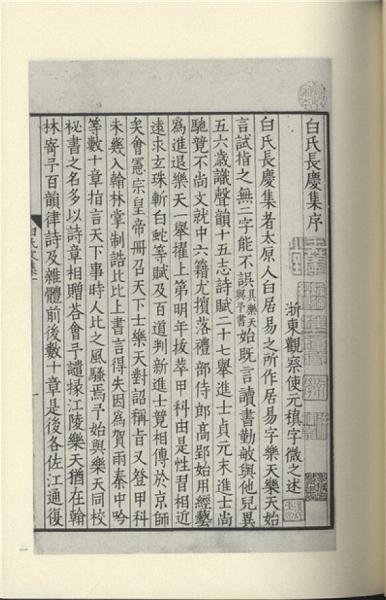 白氏長慶集序
浙東觀察使元稹字微之述
白氏長慶集者太原人白居易之所作居易字樂天樂天始
言試指之無二字能不誤具樂天與予書始既言讀書勤敏與他兒異
五六歲識聲韻十五志詩賦二十七舉進士貞元末進士尚
馳競不尚文就中六籍尤擯落禮部侍郎高郢始用經藝
爲進退樂天一舉擢上第明年拔萃甲科由是性習相近
遠求玄珠斬白蛇等賦及百道判新進士競相傳於京師
矣會憲宗皇帝冊召天下士樂天對詔稱旨又登甲科
未幾入翰林掌制誥比比上書言得失因爲賀雨秦中吟
等數十章指言天下事時人比之風騷焉予始與樂天同校
祕書之名多以詩章相贈答會予譴掾江陵樂天猶在翰
林寄予百韻律詩及雜體前後數十章是後各佐江通復